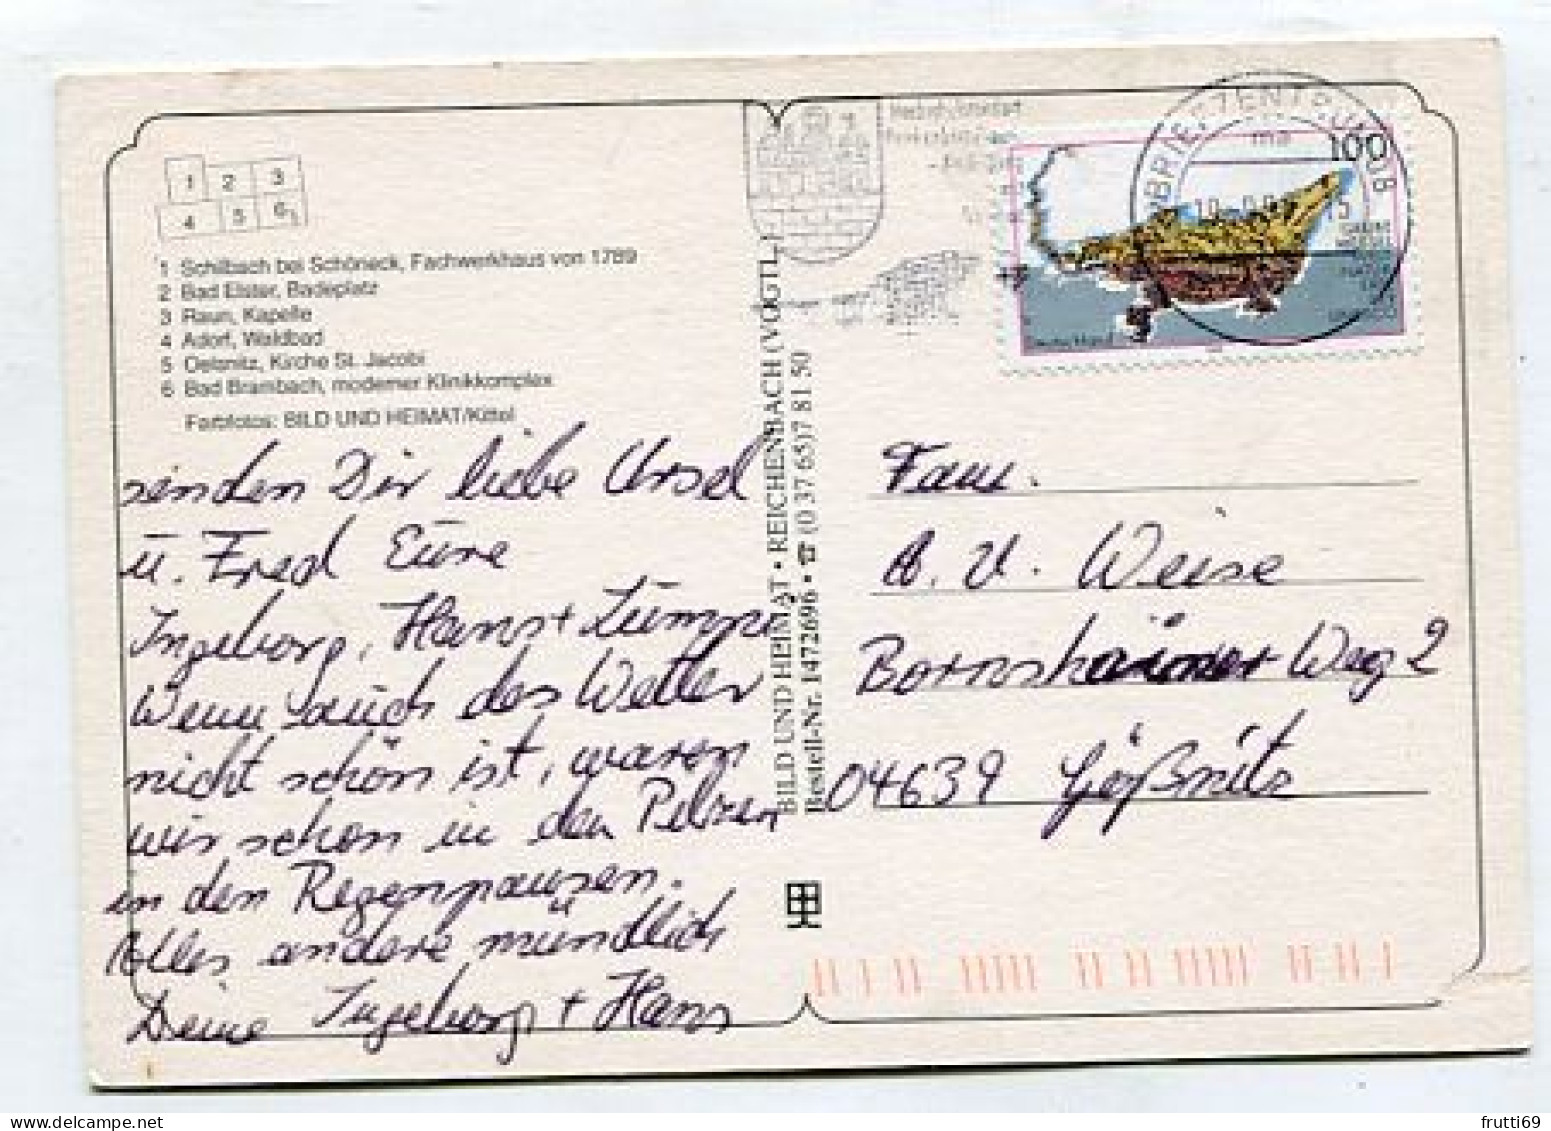 1 2 3
4 5 6
1 Schilbach bei Schöneck, Fachwerkhaus von 1789
2 Bad Elster, Badeplatz
3 Raun, Kapelle
4 Adorf, Waldbad
5 Oelsnitz, Kirche St. Jacobi
6 Bad Brambach, moderner Klinikkomplex
Farbfotos: BILD UND HEIMAT/Kittel
senden Dir liebe Ursel
u. Fred Eure
Ingeborg, Hans +
Wenn auch das Wetter
nicht schön ist, waren
wir schon in den Pilzen
in den Regenpausen.
Alles andere mündlich
Deine Ingeborg + Hans
BILD UND HEIMAT · REICHENBACH (VOGTL.)
Bestell-Nr. 1472696 · ☎ (0 37 65) 7 81 50
BRIEFZENTRUM 08
ma
100
Deutschland
Fam.
A. U. Weise
Bornshainer Weg 2
04639 Gößnitz
frutti69